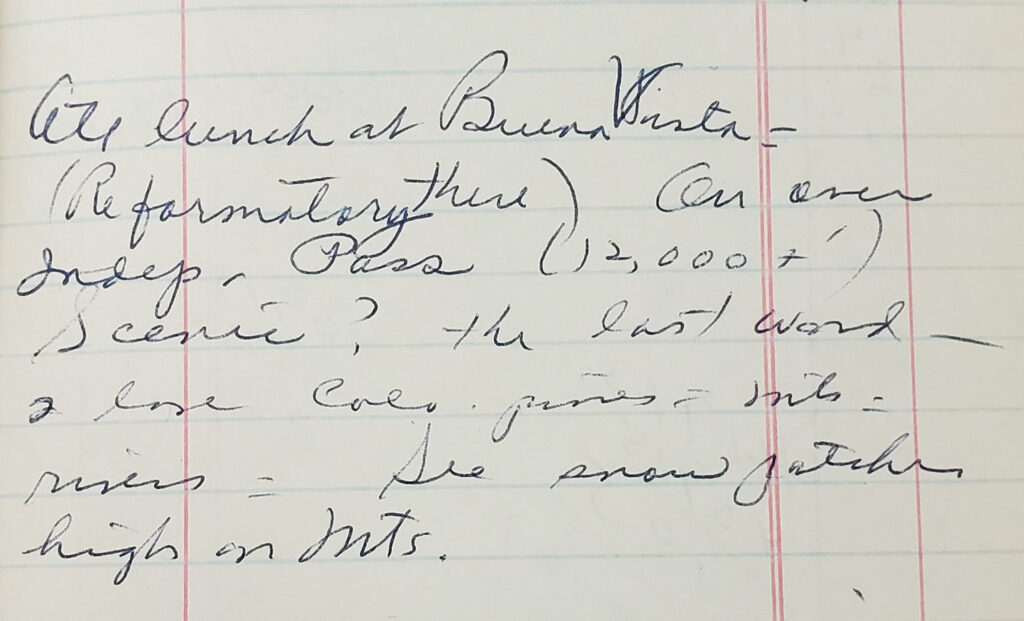 Ate lunch at Buena Vista -
(Reformatory there) On over
Indep. Pass (12,000 + ')
Scenic? the last word —
I love Colo. pines - mts -
rivers - See snow patches
high on Mts.